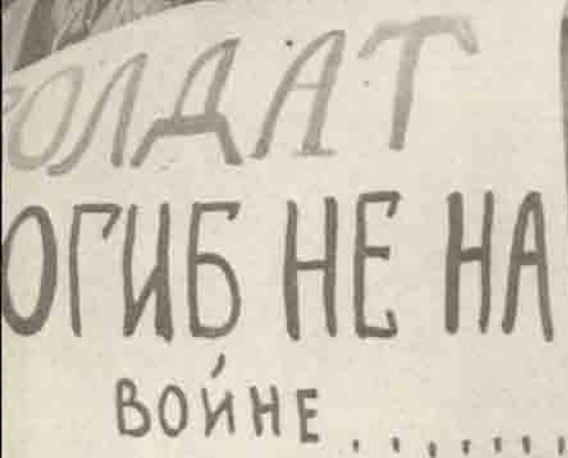 СОЛДАТ
ОГИБ НЕ НА
ВОЙНЕ........